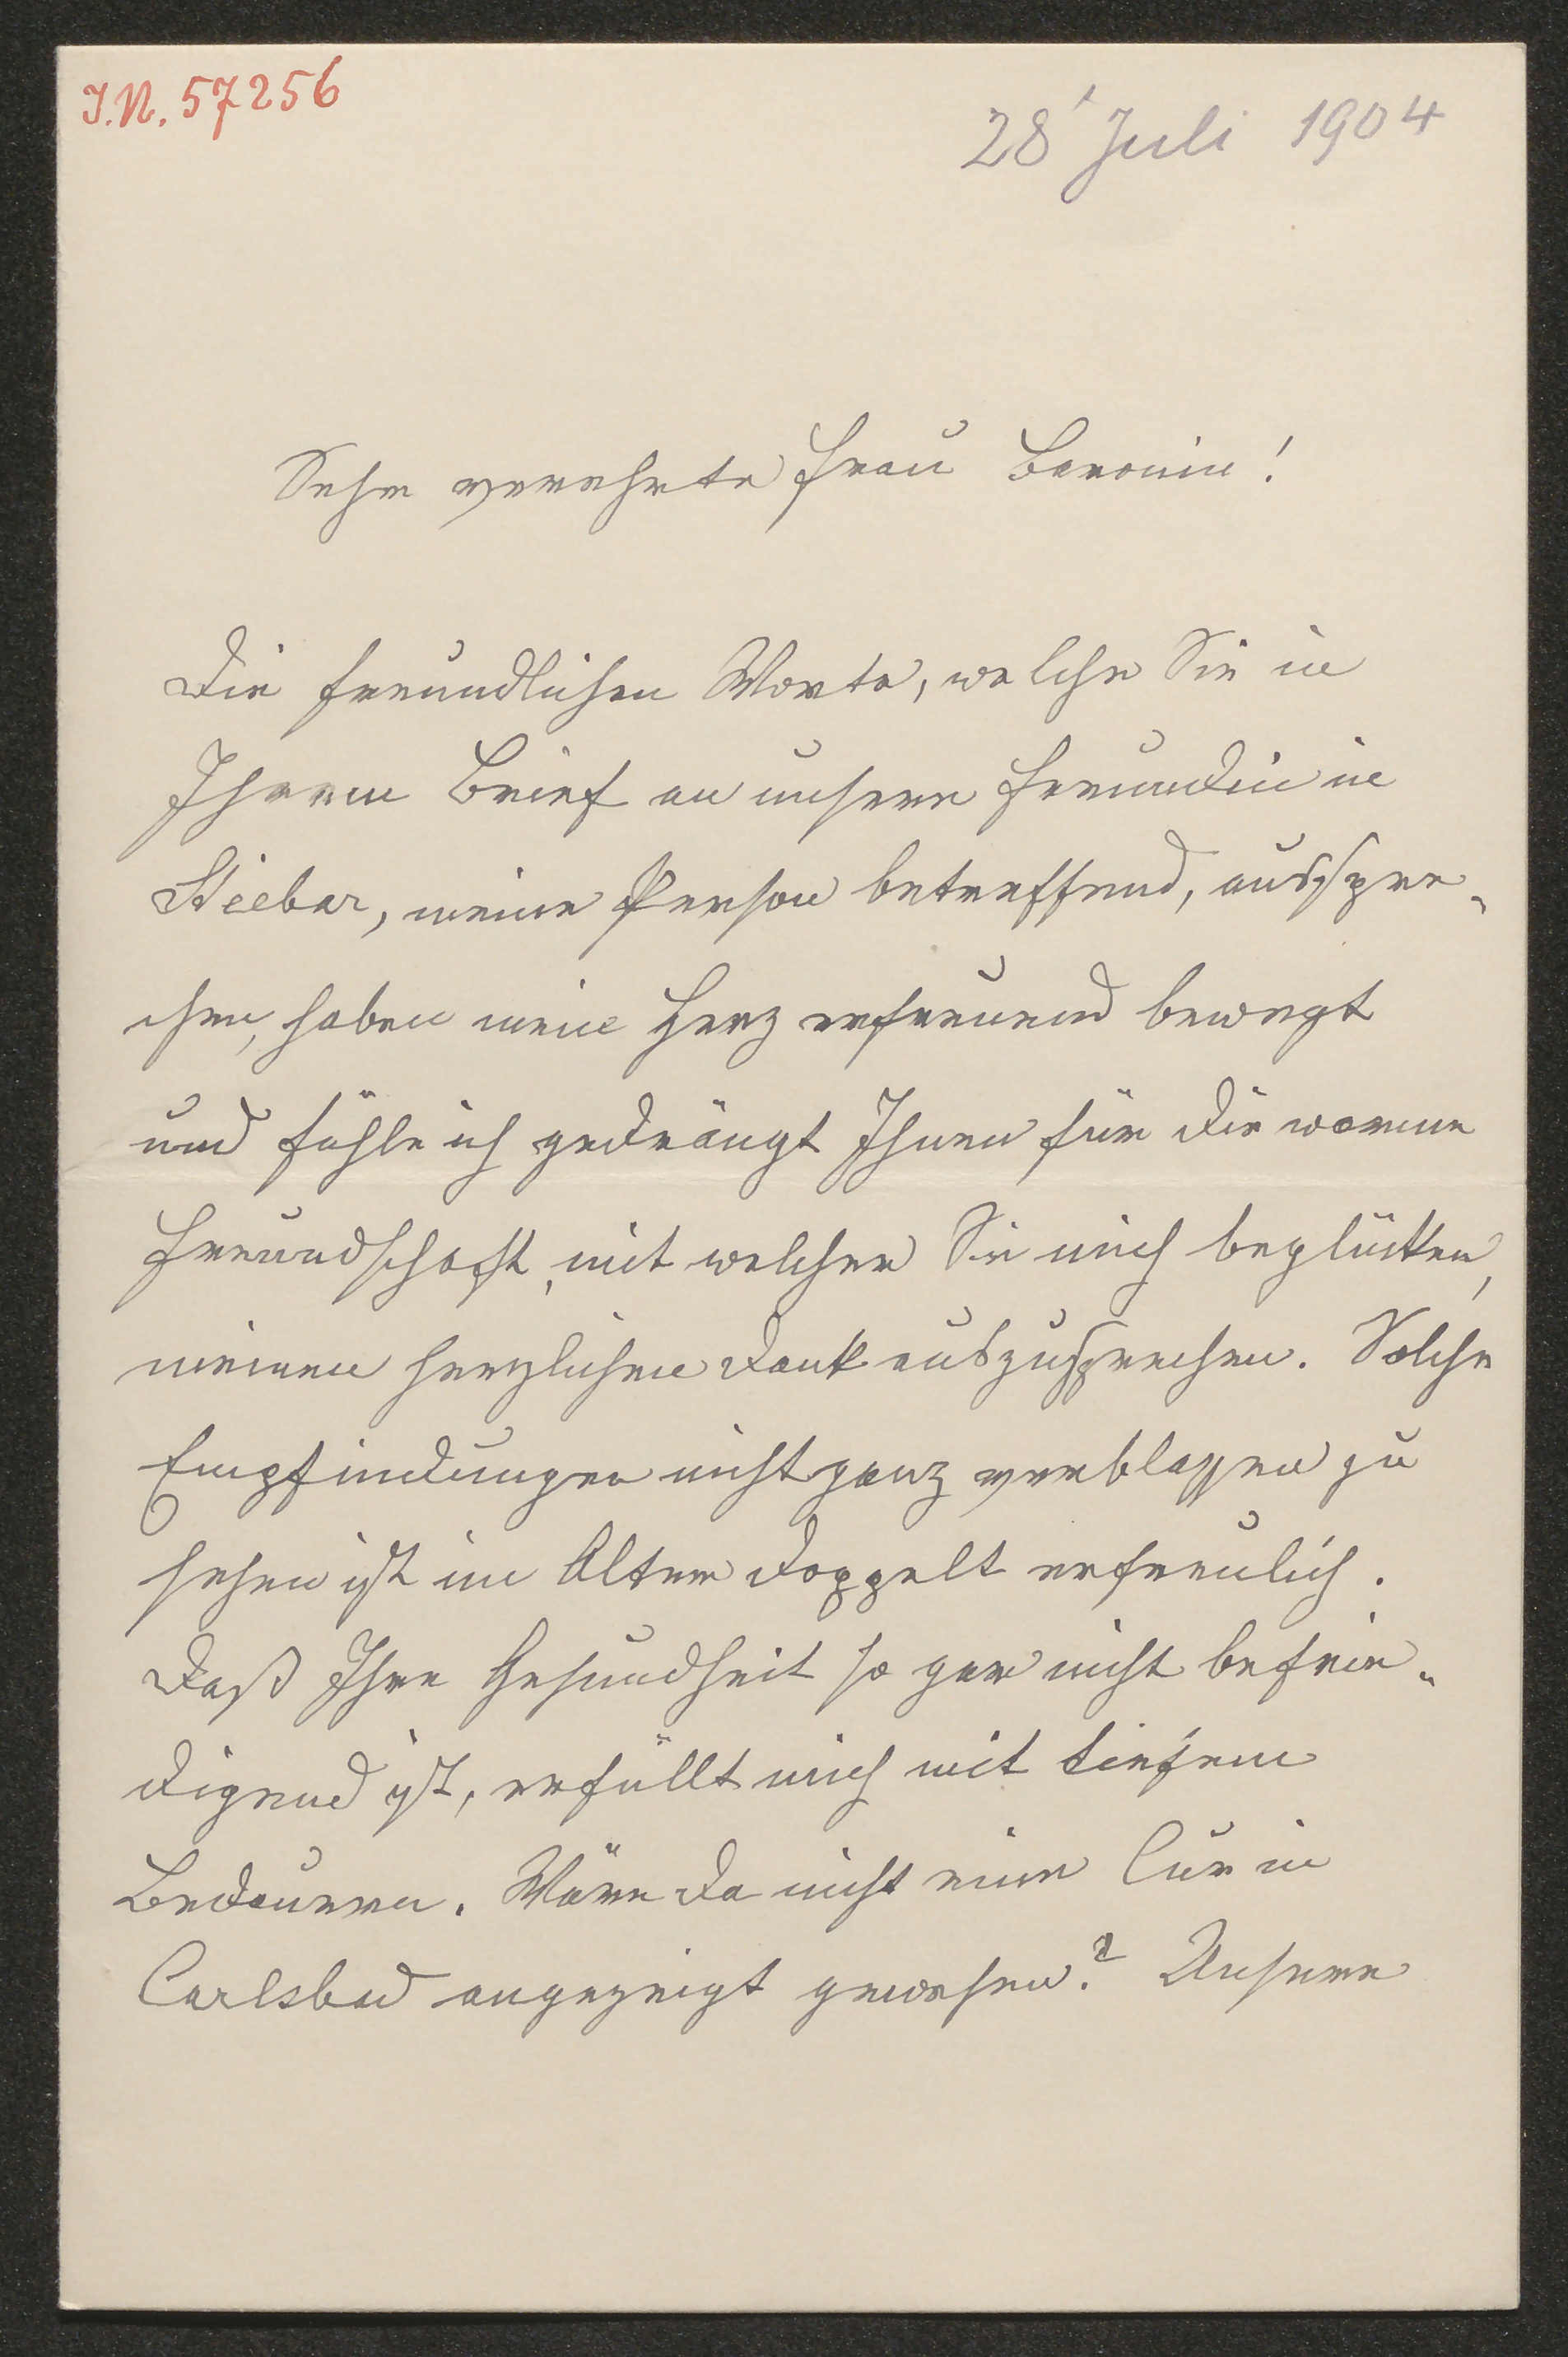 I.N. 57256
28' Juli 1904
Sehr verehrte Frau Baronin!
Die freundlichen Worte, welche Sie in
Ihrem Brief an unsere Freundin in
Stiebar, meine Person betreffend, ausspre-
chen, haben mein Herz erfreuend bewegt
und fühle ich gedrängt Ihnen für die warme
Freundschaft, mit welcher Sie mich beglücken,
meinen herzlichen Dank auszusprechen. Solche
Empfindungen nicht ganz verblassen zu
sehen ist im Alter doppelt erfreulich.
Daß Ihre Gesundheit so gar nicht befrie-
digend ist, erfüllt mich mit tiefem
Bedauern. Wäre da nicht eine Cur in
Carlsbad angezeigt gewesen? Unsere